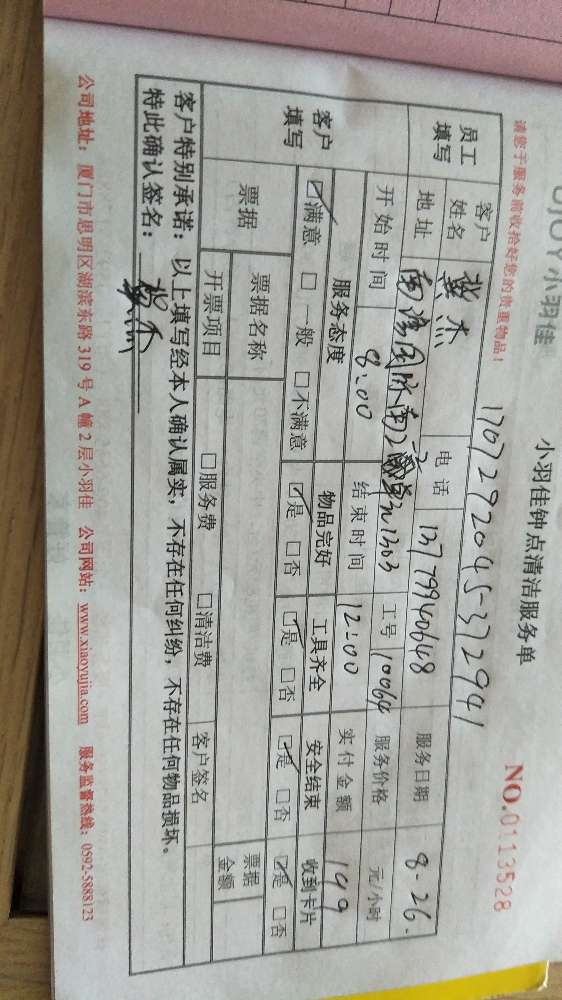 小羽佳
小羽佳钟点清洁服务单
请您于服务前收拾好您的贵重物品！
NO.0113528
1707292045-372941
员工填写
客户姓名 龚杰 电话 13779940648 服务日期 8-26.
地址 工号 10064 服务价格 元/小时
开始时间 8:00 结束时间 12:00 实付金额 149
客户填写
服务态度 物品完好 工具齐全 安全结束 收到卡片
☑满意 □一般 □不满意 ☑是 □否 ☑是 □否 ☑是 □否 ☑是 □否
票据 票据名称 票据金额
开票项目 □服务费 □清洁费 客户签名
客户特别承诺：以上填写经本人确认属实，不存在任何纠纷，不存在任何物品损坏。
特此确认签名：龚杰
公司地址：厦门市思明区湖滨东路319号A幢2层小羽佳 公司网站：www.xiaoyujia.com 服务监督热线：0592-5888123